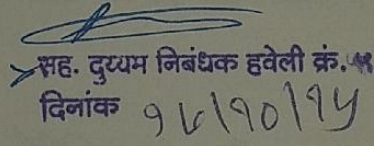 सह. दुय्यम निबंधक हवेली क्रं.
दिनांक १६/१०/१५